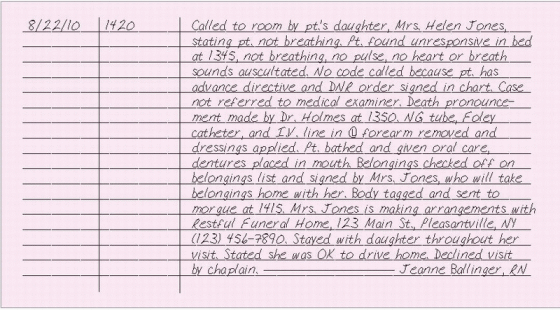 8/22/10 1420 Called to room by pt.'s daughter, Mrs. Helen Jones,
stating pt. not breathing. Pt. found unresponsive in bed
at 1345, not breathing, no pulse, no heart or breath
sounds auscultated. No code called because pt. has
advance directive and DNR order signed in chart. Case
not referred to medical examiner. Death pronounce-
ment made by Dr. Holmes at 1350. NG tube, Foley
catheter, and I.V. line in Ⓛ forearm removed and
dressings applied. Pt. bathed and given oral care,
dentures placed in mouth. Belongings checked off on
belongings list and signed by Mrs. Jones, who will take
belongings home with her. Body tagged and sent to
morgue at 1415. Mrs. Jones is making arrangements with
Restful Funeral Home, 123 Main St., Pleasantville, NY
(123) 456-7890. Stayed with daughter throughout her
visit. Stated she was OK to drive home. Declined visit
by chaplain. ———————— Jeanne Ballinger, RN